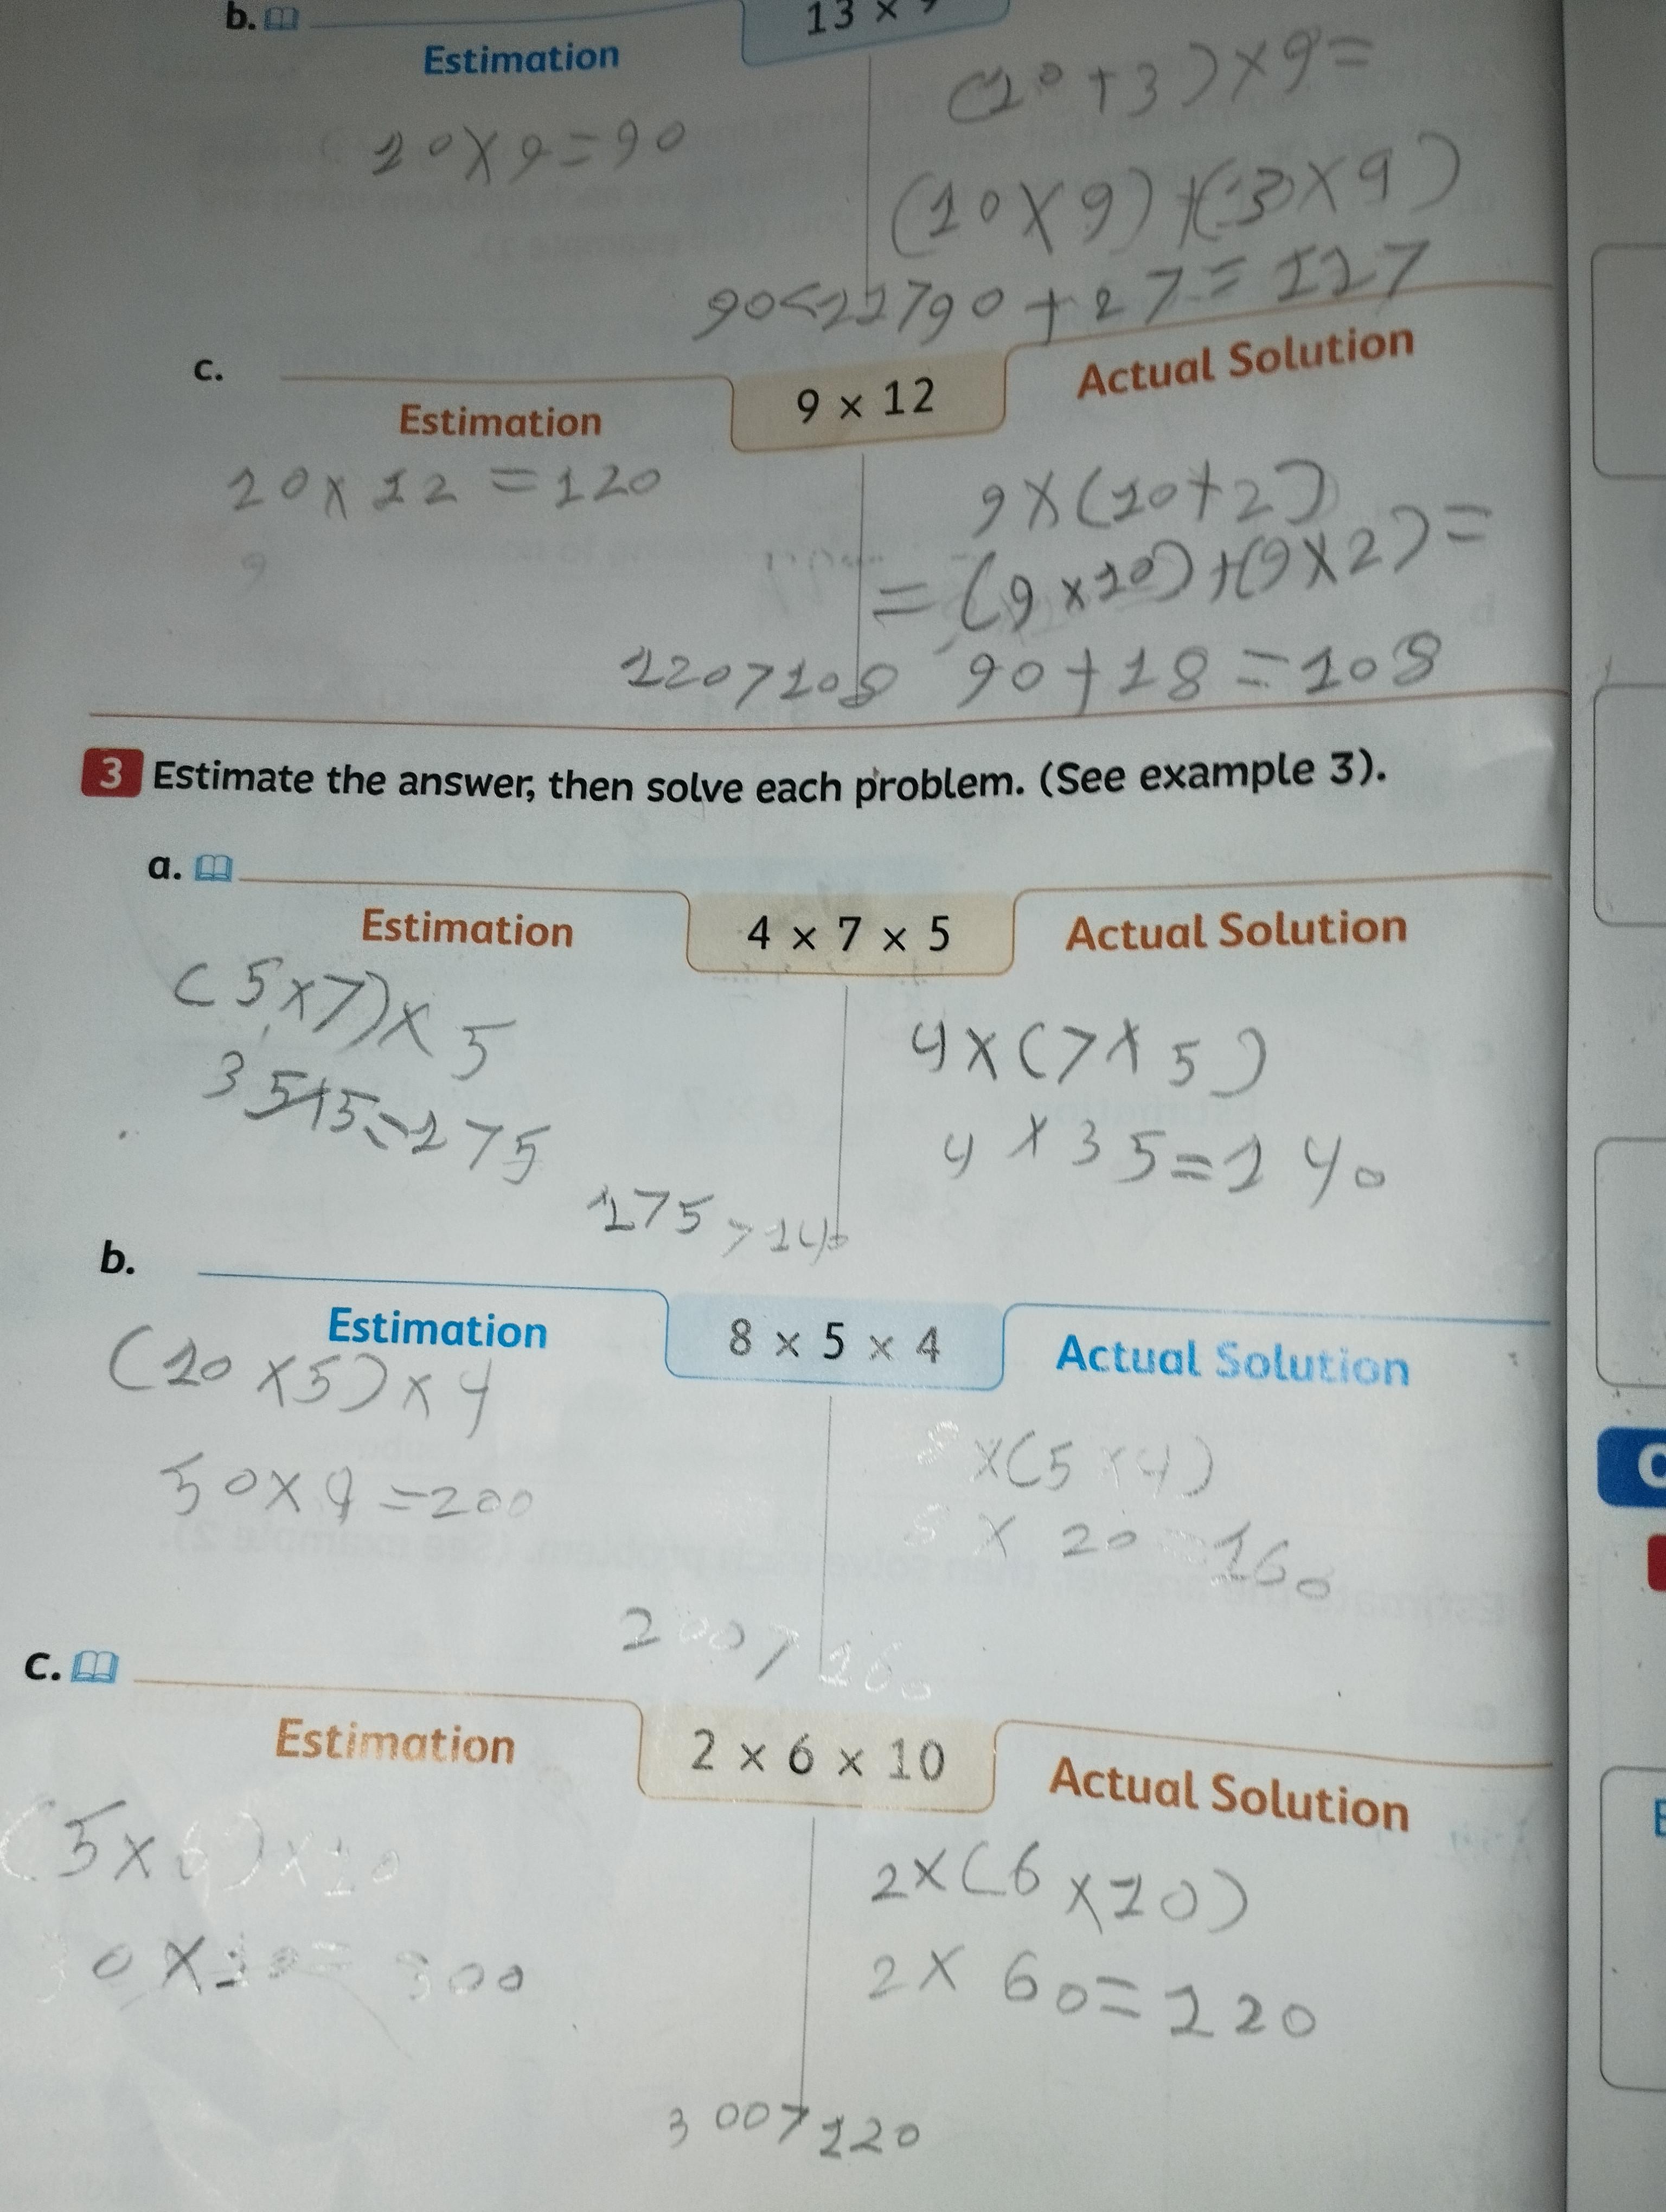 b.
13 ×
Estimation
(10+3)×9=
10×9=90
(10×9)+(3×9)
90<117 90+27=117
c.
9 × 12
Estimation
Actual Solution
10×12=120
9×(10+2)
=(9×10)+(9×2)=
9
120>108 90+18=108
3 Estimate the answer, then solve each problem. (See example 3).
a.
4 × 7 × 5
Estimation
Actual Solution
(5×7)×5
4×(7×5)
35×5=175
4×35=140
175>140
b.
8 × 5 × 4
Estimation
Actual Solution
(10×5)×4
8×(5×4)
50×4=200
8×20=160
200>160
c.
2 × 6 × 10
Estimation
Actual Solution
(5×6)×10
2×(6×10)
30×10=300
2×60=120
300>120